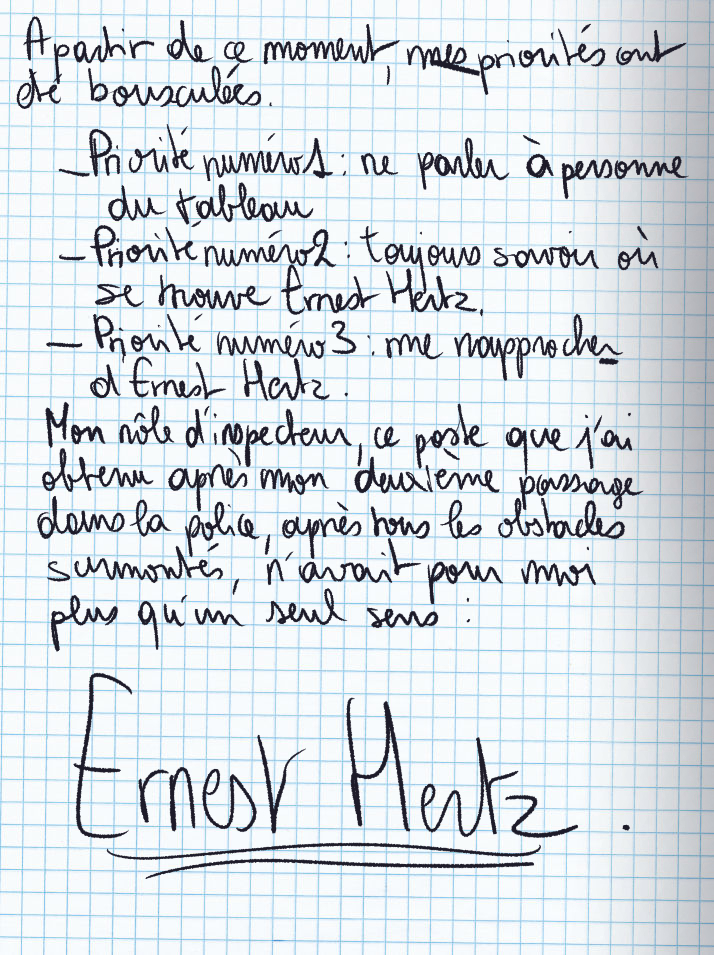 A partir de ce moment, mes priorités ont
été bousculées.
- Priorité numéro 1 : ne parler à personne
du tableau
- Priorité numéro 2 : toujours savoir où
se trouve Ernest Hertz.
- Priorité numéro 3 : me rapprocher
d'Ernest Hertz.
Mon rôle d'inspecteur, ce poste que j'ai
obtenu après mon deuxième passage
dans la police, après tous les obstacles
surmontés, n'avait pour moi
plus qu'un seul sens :
Ernest Hertz.